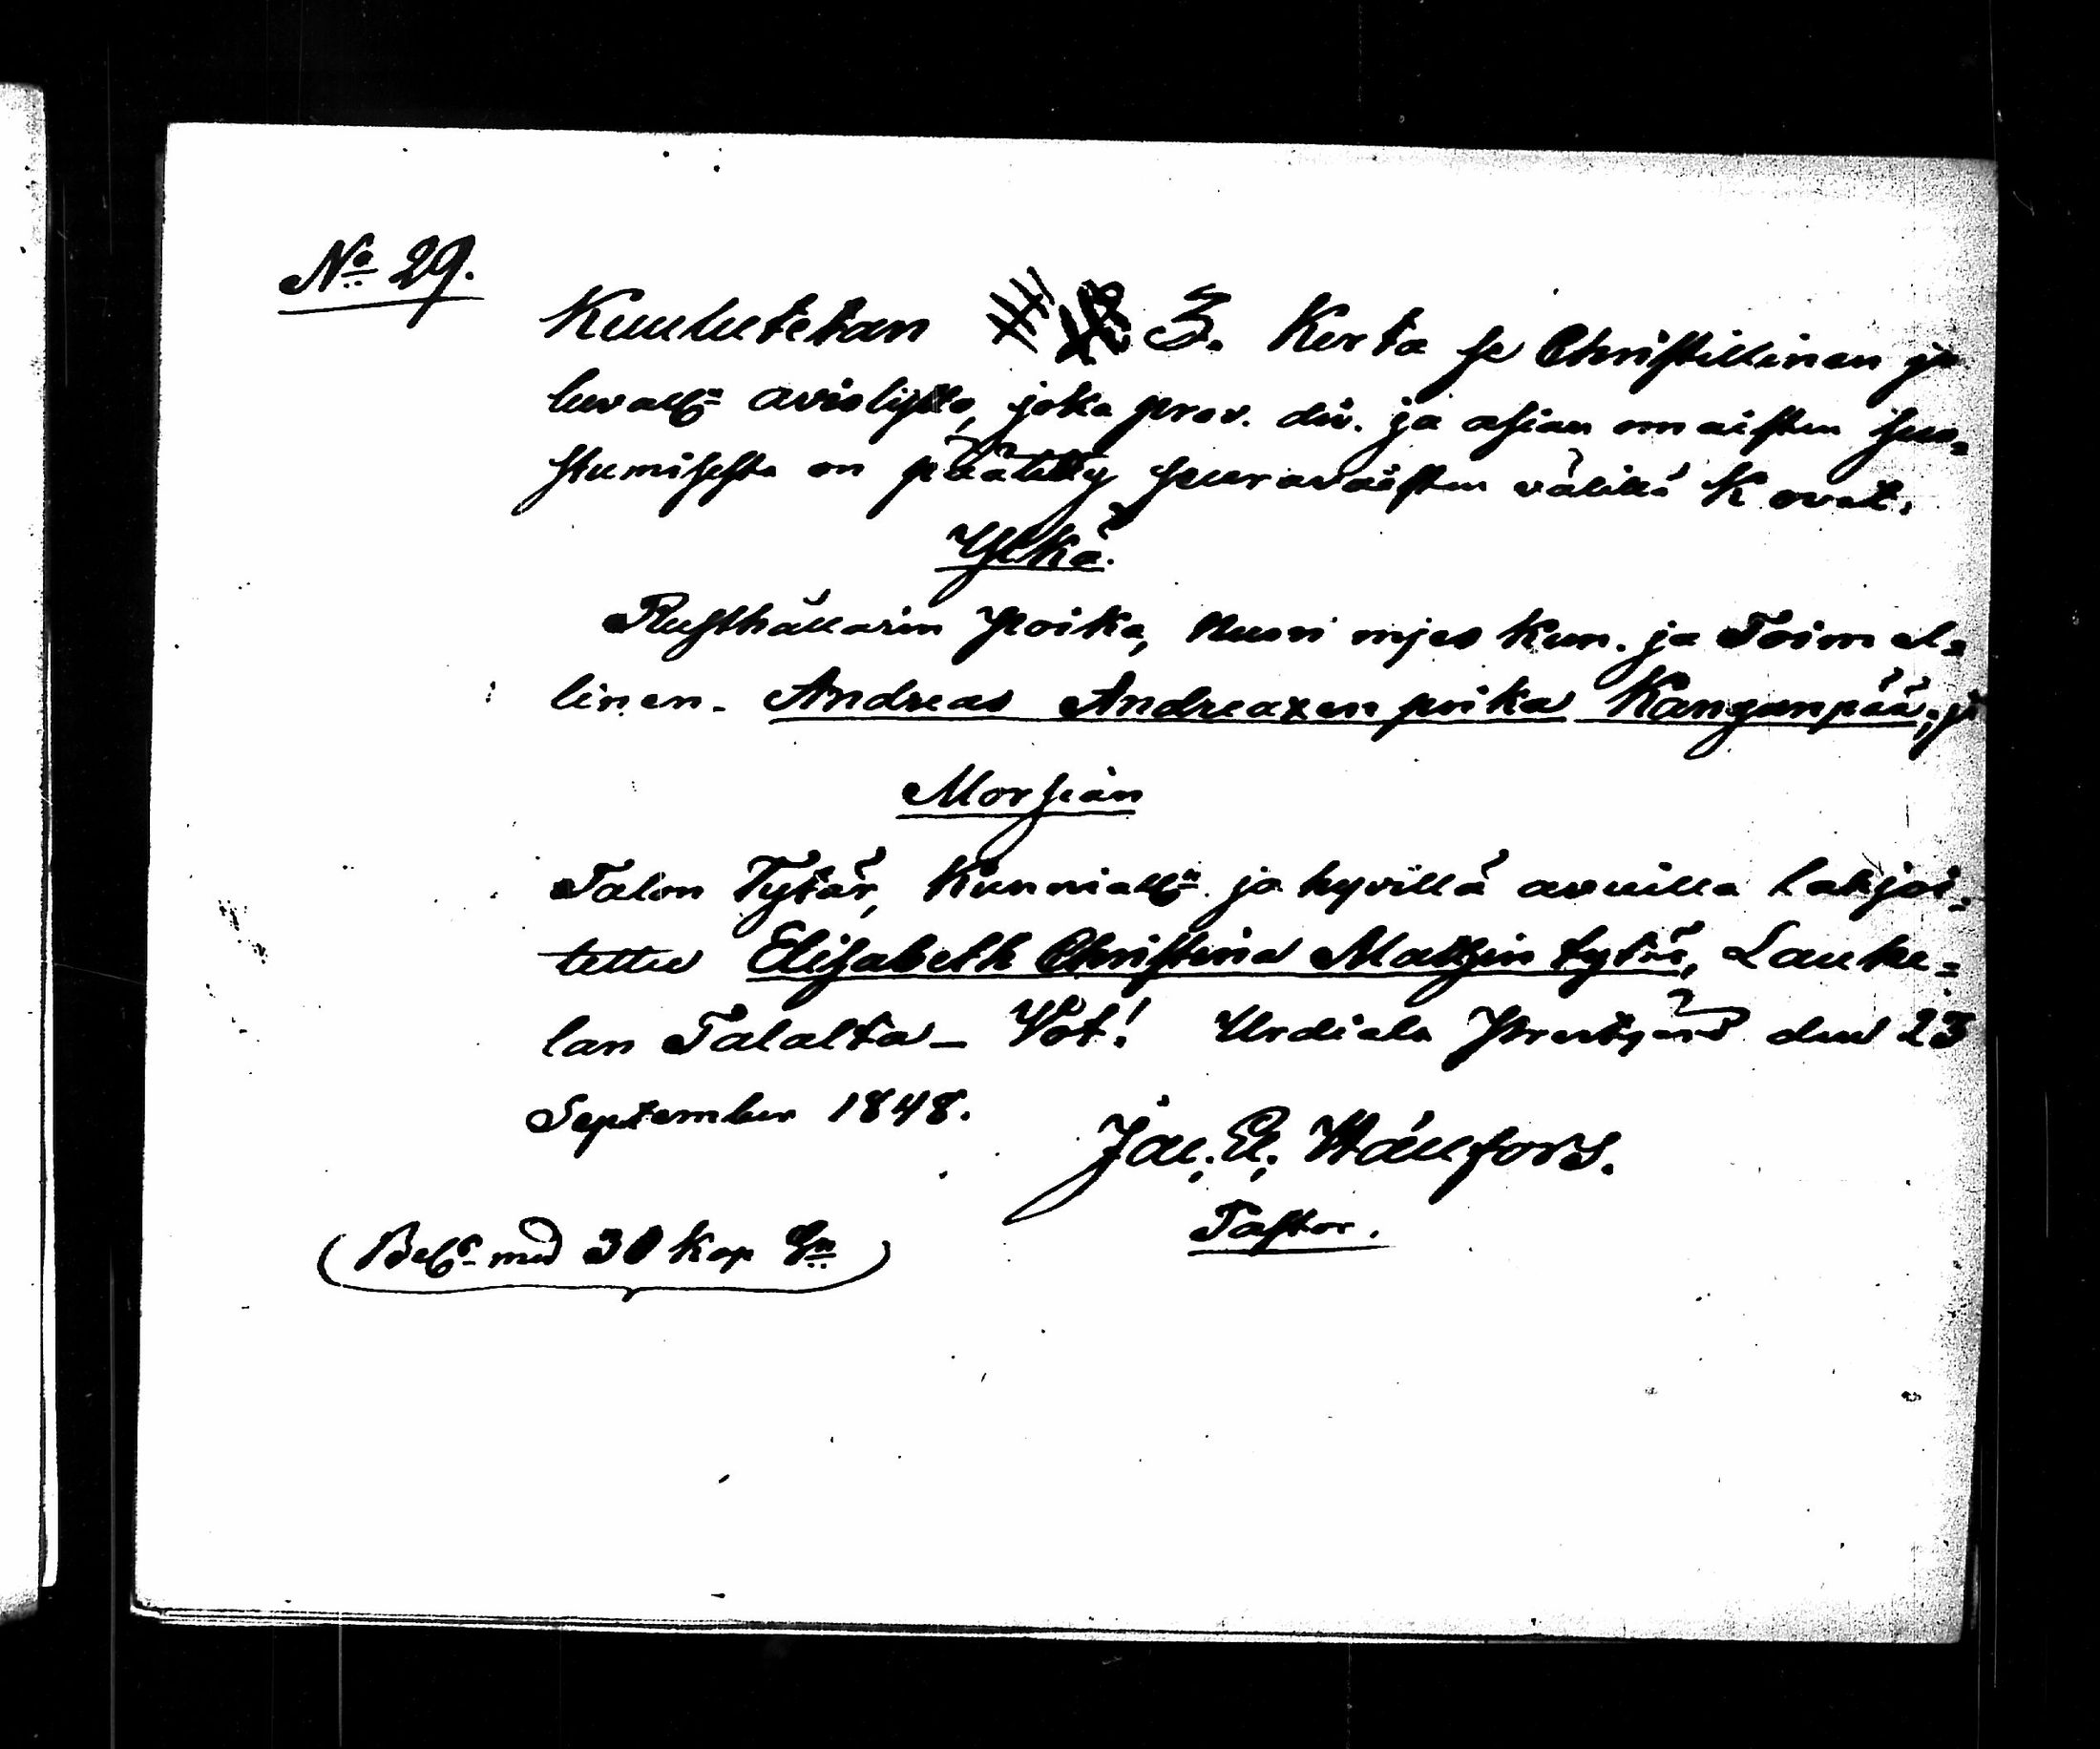 No 29.
Kuulutetan 3. Kerta se Christillinen ja
luvall:n avioliitto, joka prov. div. ja asian omaisten suo=
stumisesta on päätetty seuravaisten välillä K ovat.
Ylkä.
Rusthållarin poika, Nuori mjes Kun. ja Toimel=
linen. Andreas Andreaxen poika Kanganpää, ja
Morsian
Talon Tytär, Kunniall:n ja hyvillä avuilla lahjoi=
tettu Elisabeth Christina Matzin tytär, Lauke=
lan Talalta_ Vot! Urdiala Prestgård den 23
September 1848.
Jac. E. Hällfors.
Pastor.
(Bel:s med 30 kop Sr)